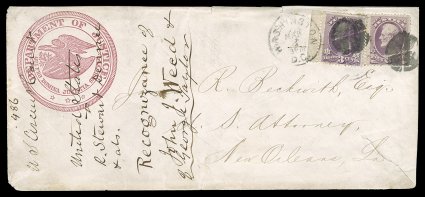 DEPARTMENT OF JUSTICE
WASHINGTON
D.C.
J. R. Beckwith, Esq.
U. S. Attorney,
New Orleans, La
486
U S Circuit
United States
vs
& als.
Recognizance of
John G. Weed &
George Taylor